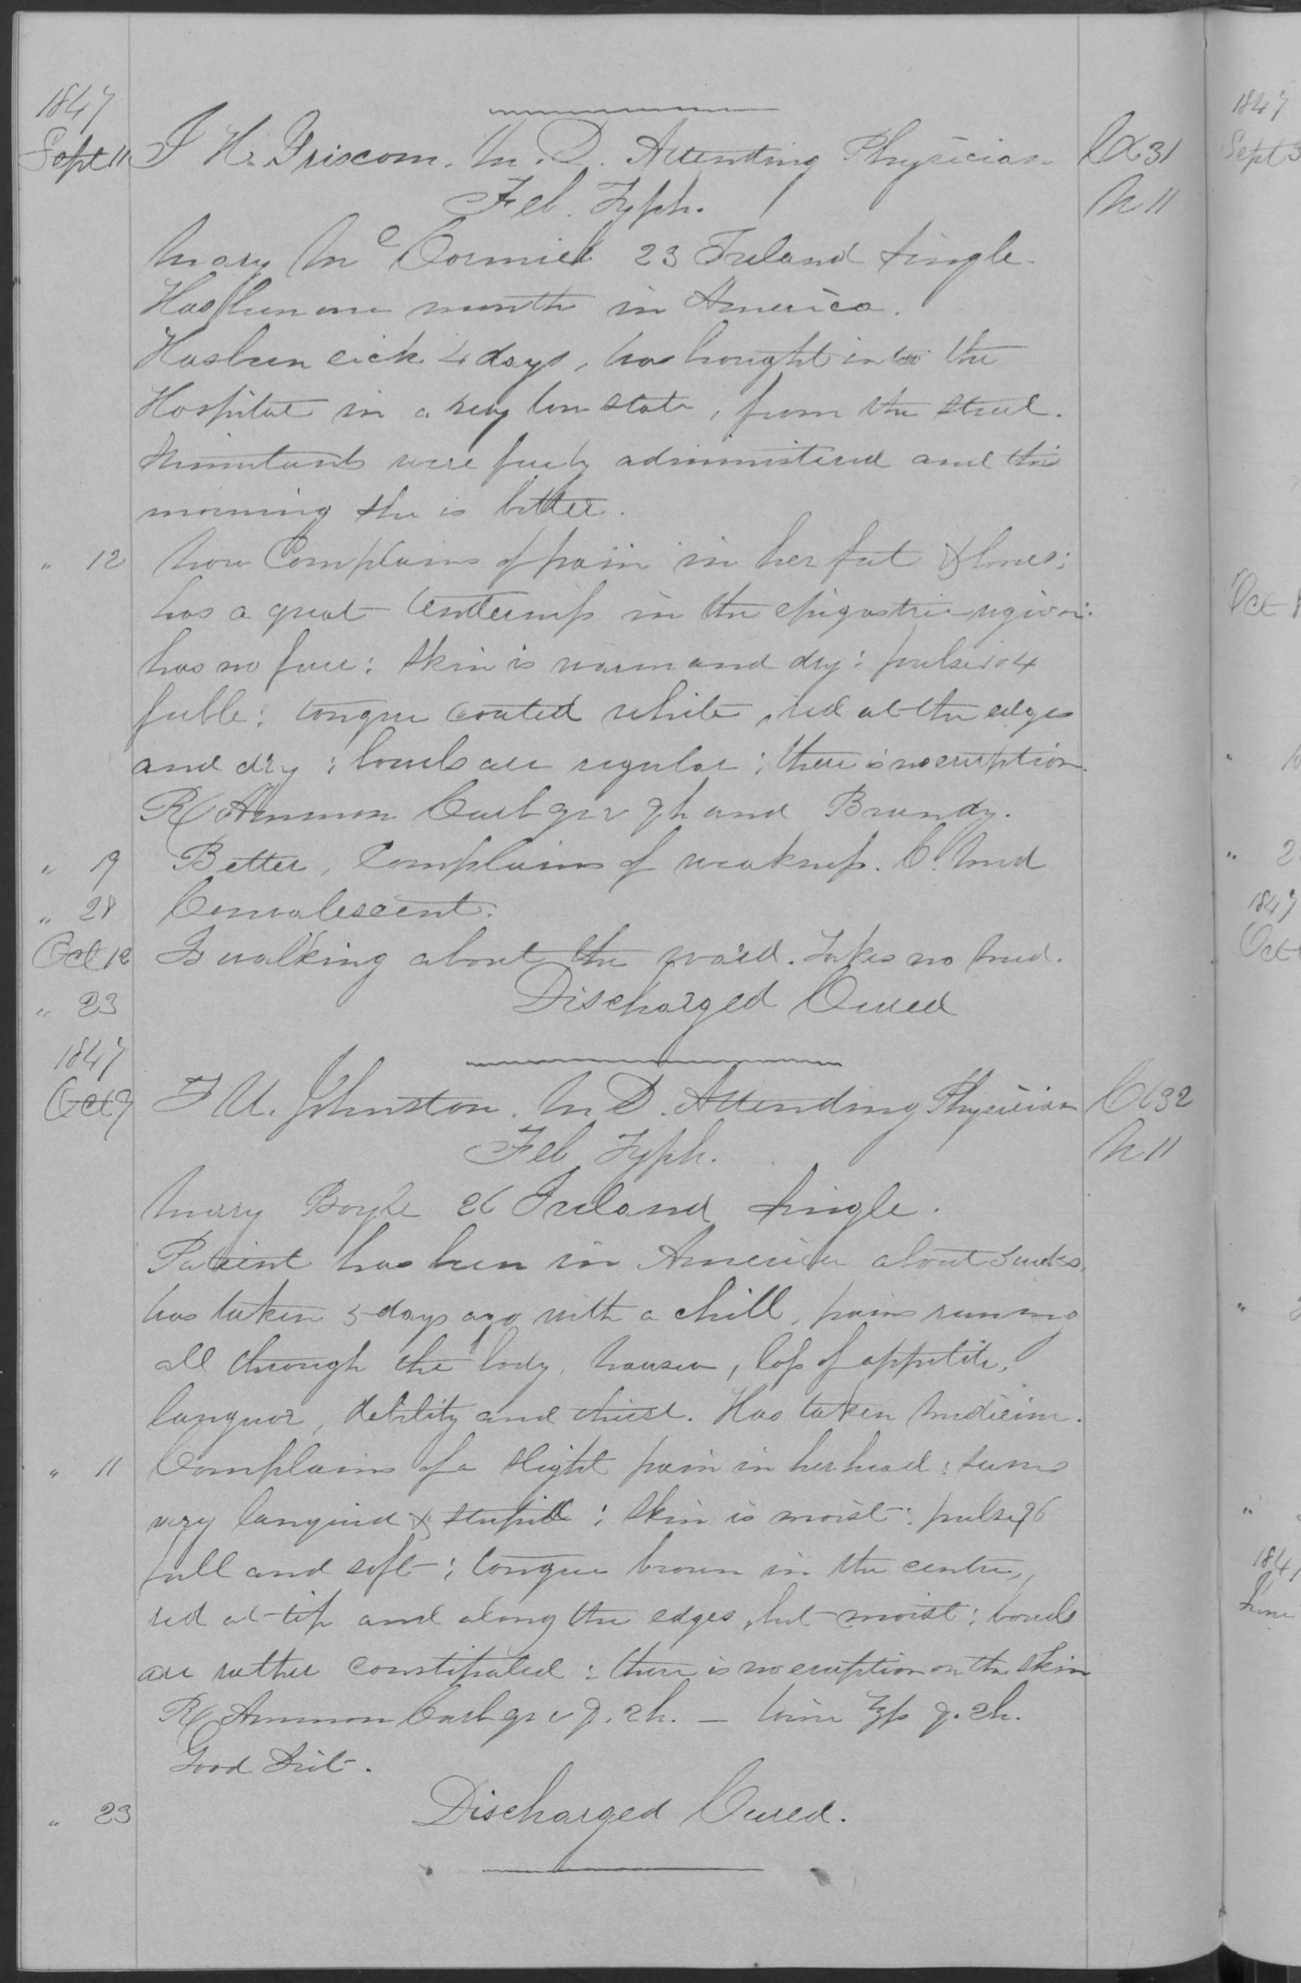 1847
Sept 11 J H. Griscom. M. D. Attending Physician C 31
Feb. Typh. N 11
Mary Mc Cormick 23 Ireland Single.
Has been one month in America.
Has been sick 4 days, was brought into the
Hospital in a very low state, from the street.
Stimulants were freely administered and this
morning she is better.
" 12 Now Complains of pain in her feet & bones:
has a great tenderness in the epigastric region:
has no fever: Skin is warm and dry: pulse 104
feeble: tongue coated white, red at the edges
and dry: bowels are regular: there is no eruption.
R Ammon Carb gr v 2h and Brandy.
" 19 Better, Complains of weakness. C. Med
" 28 Convalescent.
Oct 12 Is walking about the ward. Takes no Med.
" 23 Discharged Cured
1847
Oct 9 F U. Johnston. M D. Attending Physician C 32
Feb Typh. N 11
Mary Boyle 26 Ireland Single.
Patient has been in America about 3 weeks,
was taken 5 days ago with a chill, pains running
all through the body, nausea, loss of appetite,
languor, debility and thirst. Has taken Medicine.
" 11 Complains of a slight pain in her head: seems
very languid & stupid: Skin is moist: pulse 96
full and soft: tongue brown in the centre,
red at tip and along the edges, but moist: bowels
are rather constipated: there is no eruption on the Skin
R Ammon Carb gr v q. 2h. — Wine ℥fs q. 2h.
Good Diet.
" 23 Discharged Cured.
1847
Sept
Oct
"
"
1847
Oct
"
"
184
June